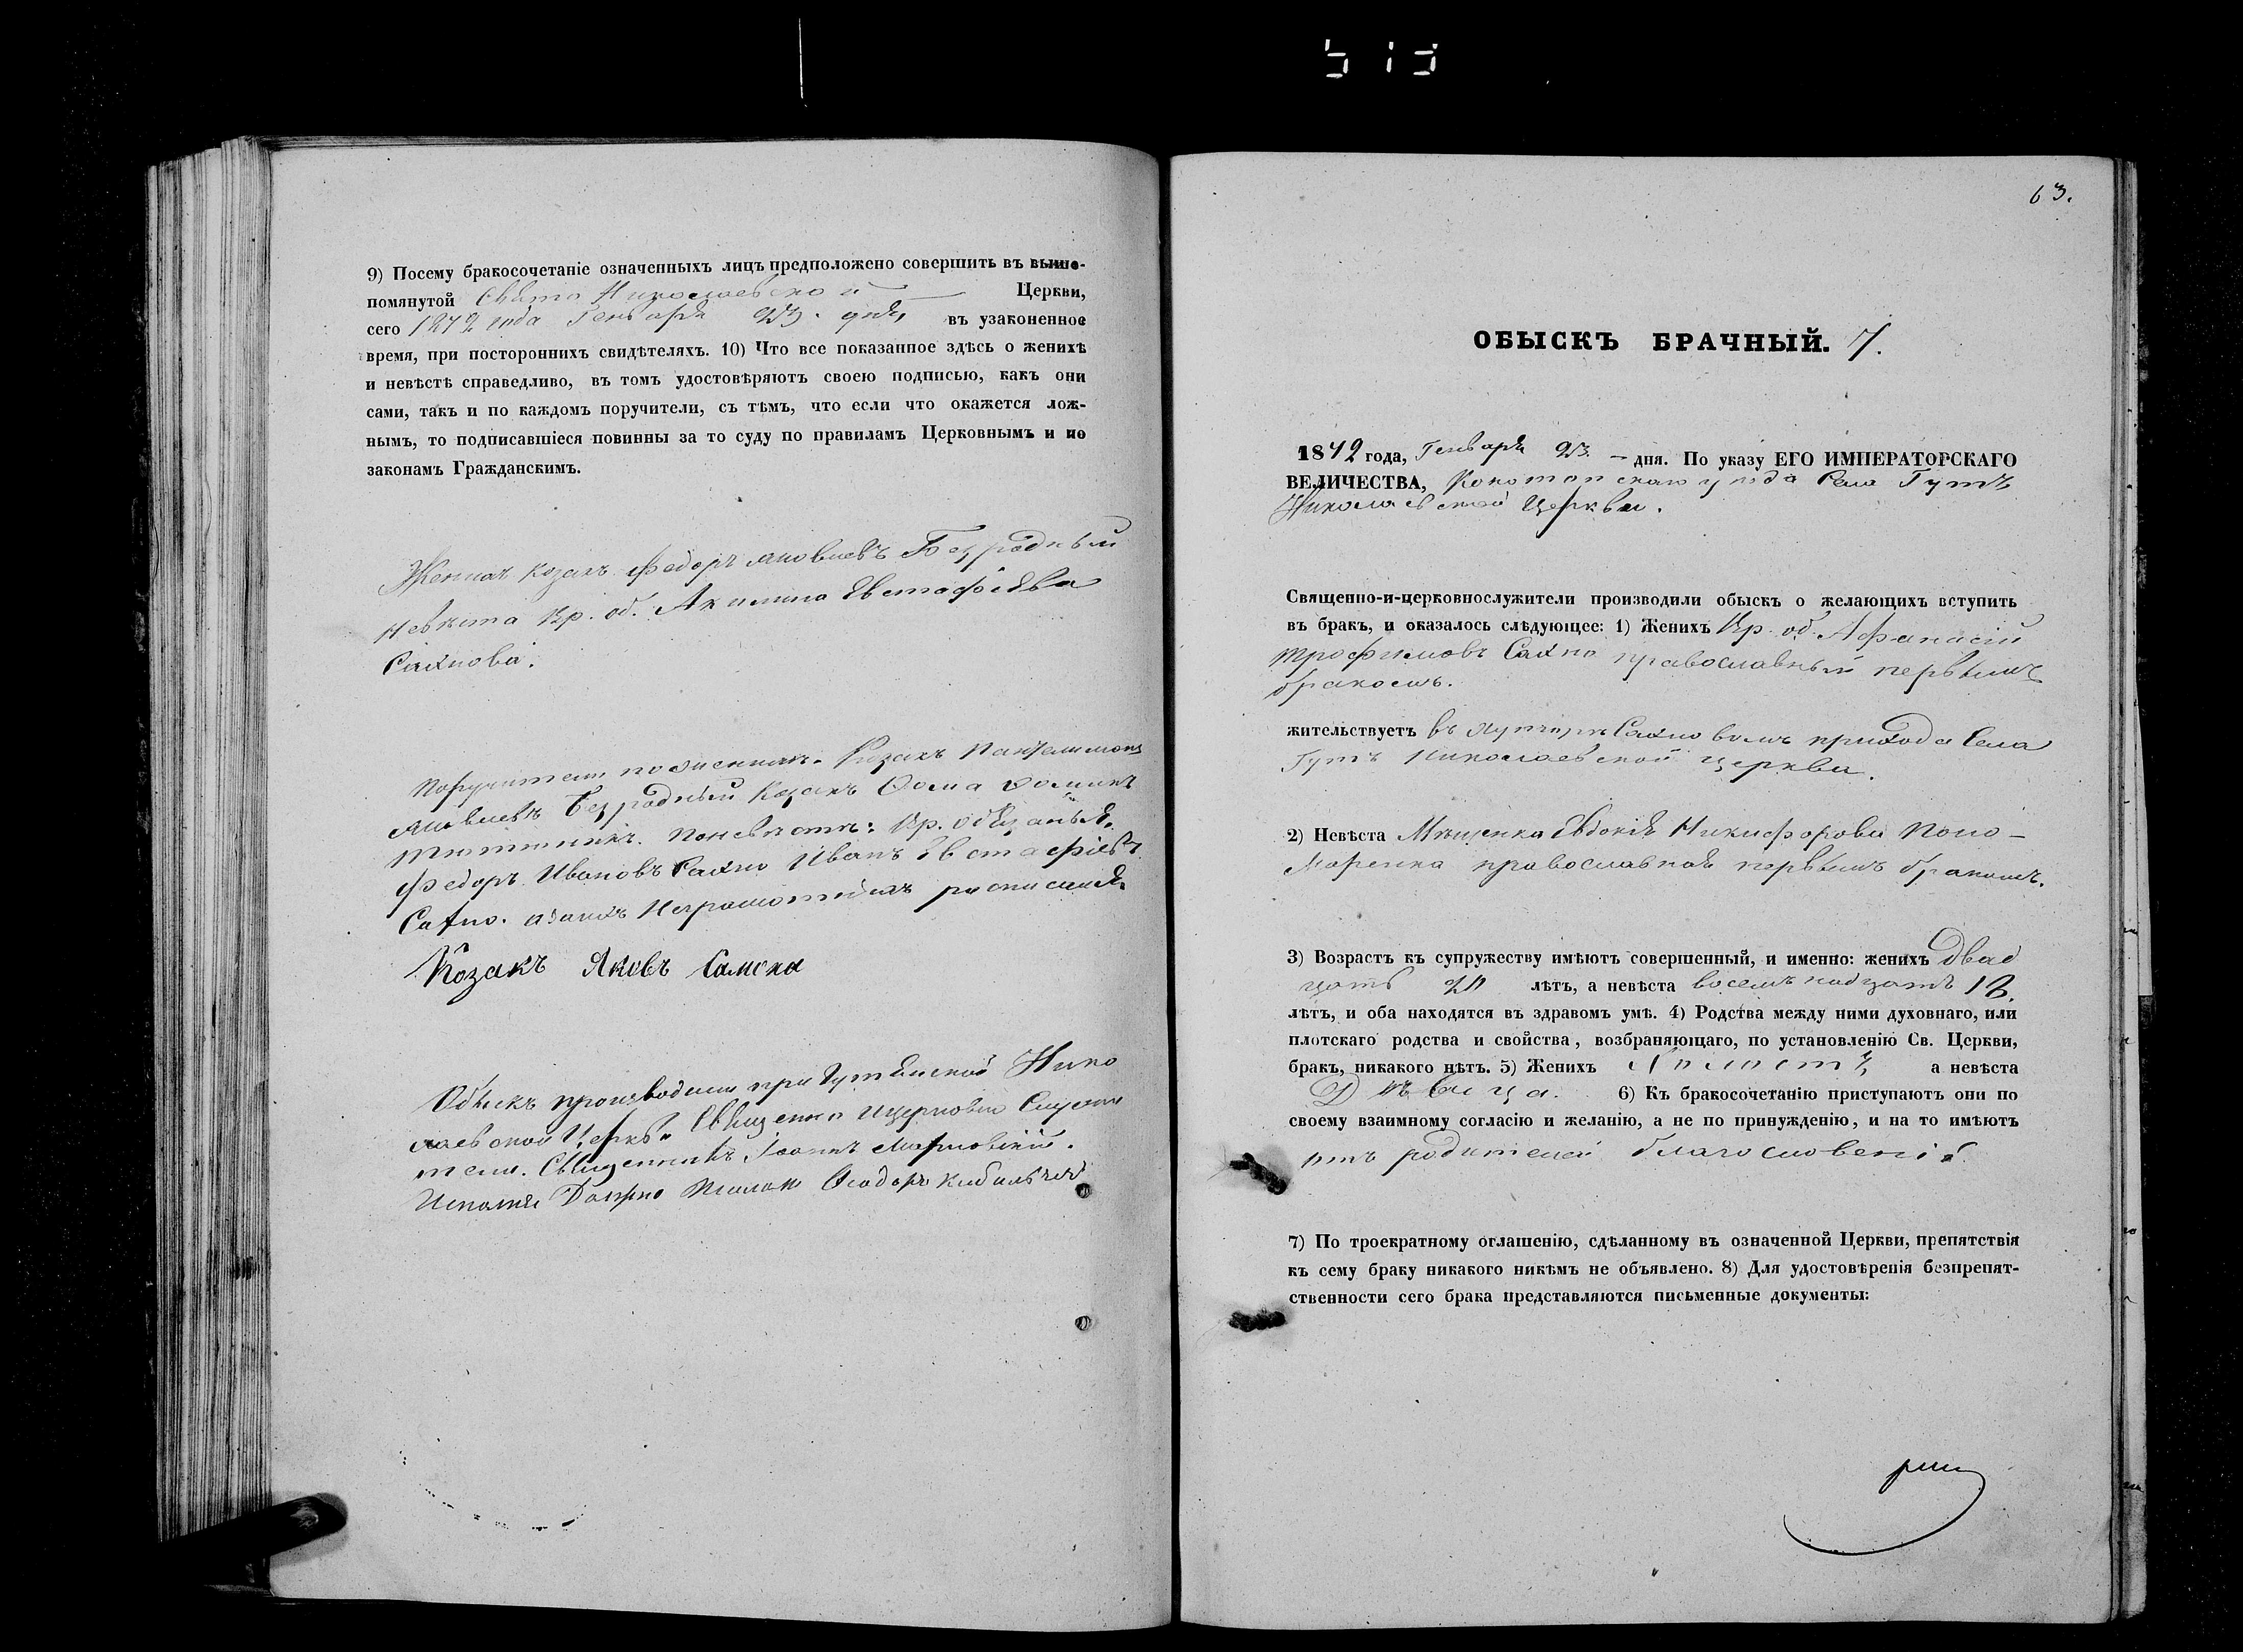 9) Посему бракосочетаніе означенныхъ лицъ предположено совершить въ выше-
помянутой Свято Николаевской Церкви,
сего 1872 года Генваря 23. дня, въ узаконенное
время, при постороннихъ свидѣтеляхъ. 10) Что все показанное здѣсь о женихѣ
и невѣстѣ справедливо, въ томъ удостовѣряютъ своею подписью, какъ они
сами, такъ и по каждомъ поручители, съ тѣмъ, что если что окажется лож-
нымъ, то подписавшіеся повинны за то суду по правиламъ Церковнымъ и по
законамъ Гражданскимъ.
Женихъ козакъ Федоръ Яковлевъ Безродный
Невѣста Кр. об. Акилина Евстафіева
Сахнова.
Поручители по женихѣ. Козакъ Пантелимонъ
Яковлевъ Безродный Козакъ Фома
По невѣстѣ: Кр. обязаные.
Федоръ Ивановъ Сахно Иванъ Евстафіевъ
Сахно. а за нихъ Неграмотныхъ росписался
Козакъ Яковъ Самоха
Обыскъ производили при Гутянской Нико
лаевской Церкви Священно и церковно Служи
тели. Священникъ Іоаннъ
Исполня Должно Псалом Феодоръ
63.
ОБЫСКЪ БРАЧНЫЙ. 7.
1842 года, Генваря 23. дня. По указу ЕГО ИМПЕРАТОРСКАГО
ВЕЛИЧЕСТВА, Конотопскаго уезда Села Гутъ
Николаевской Церкви.
Священно-и-церковнослужители производили обыскъ о желающихъ вступить
въ бракъ, и оказалось слѣдующее: 1) Женихъ Кр. об. Афанасій
Трофимовъ Сахно православный первымъ
бракомъ.
жительствуетъ въ хуторѣ Сахновомъ прихода Села
Гутъ Николаевской церкви.
2) Невѣста Мѣщенка Евдокія Никифорова Поно-
Маренка православная первымъ бракомъ.
3) Возрастъ къ супружеству имѣютъ совершенный, и именно: женихъ двад
цать 20 лѣтъ, а невѣста восемънадцать 18.
лѣтъ, и оба находятся въ здравомъ умѣ. 4) Родства между ними духовнаго, или
плотскаго родства и свойства, возбраняющаго, по установленію Св. Церкви,
бракъ, никакого нѣтъ. 5) Женихъ Холостъ, а невѣста
Дѣвица. 6) Къ бракосочетанію приступаютъ они по
своему взаимному согласію и желанію, а не по принужденію, и на то имѣютъ
отъ родителей благословеніе
7) По троекратному оглашенію, сдѣланному въ означенной Церкви, препятствія
къ сему браку никакого никѣмъ не объявлено. 8) Для удостовѣренія безпрепят-
ственности сего брака представляются письменные документы: